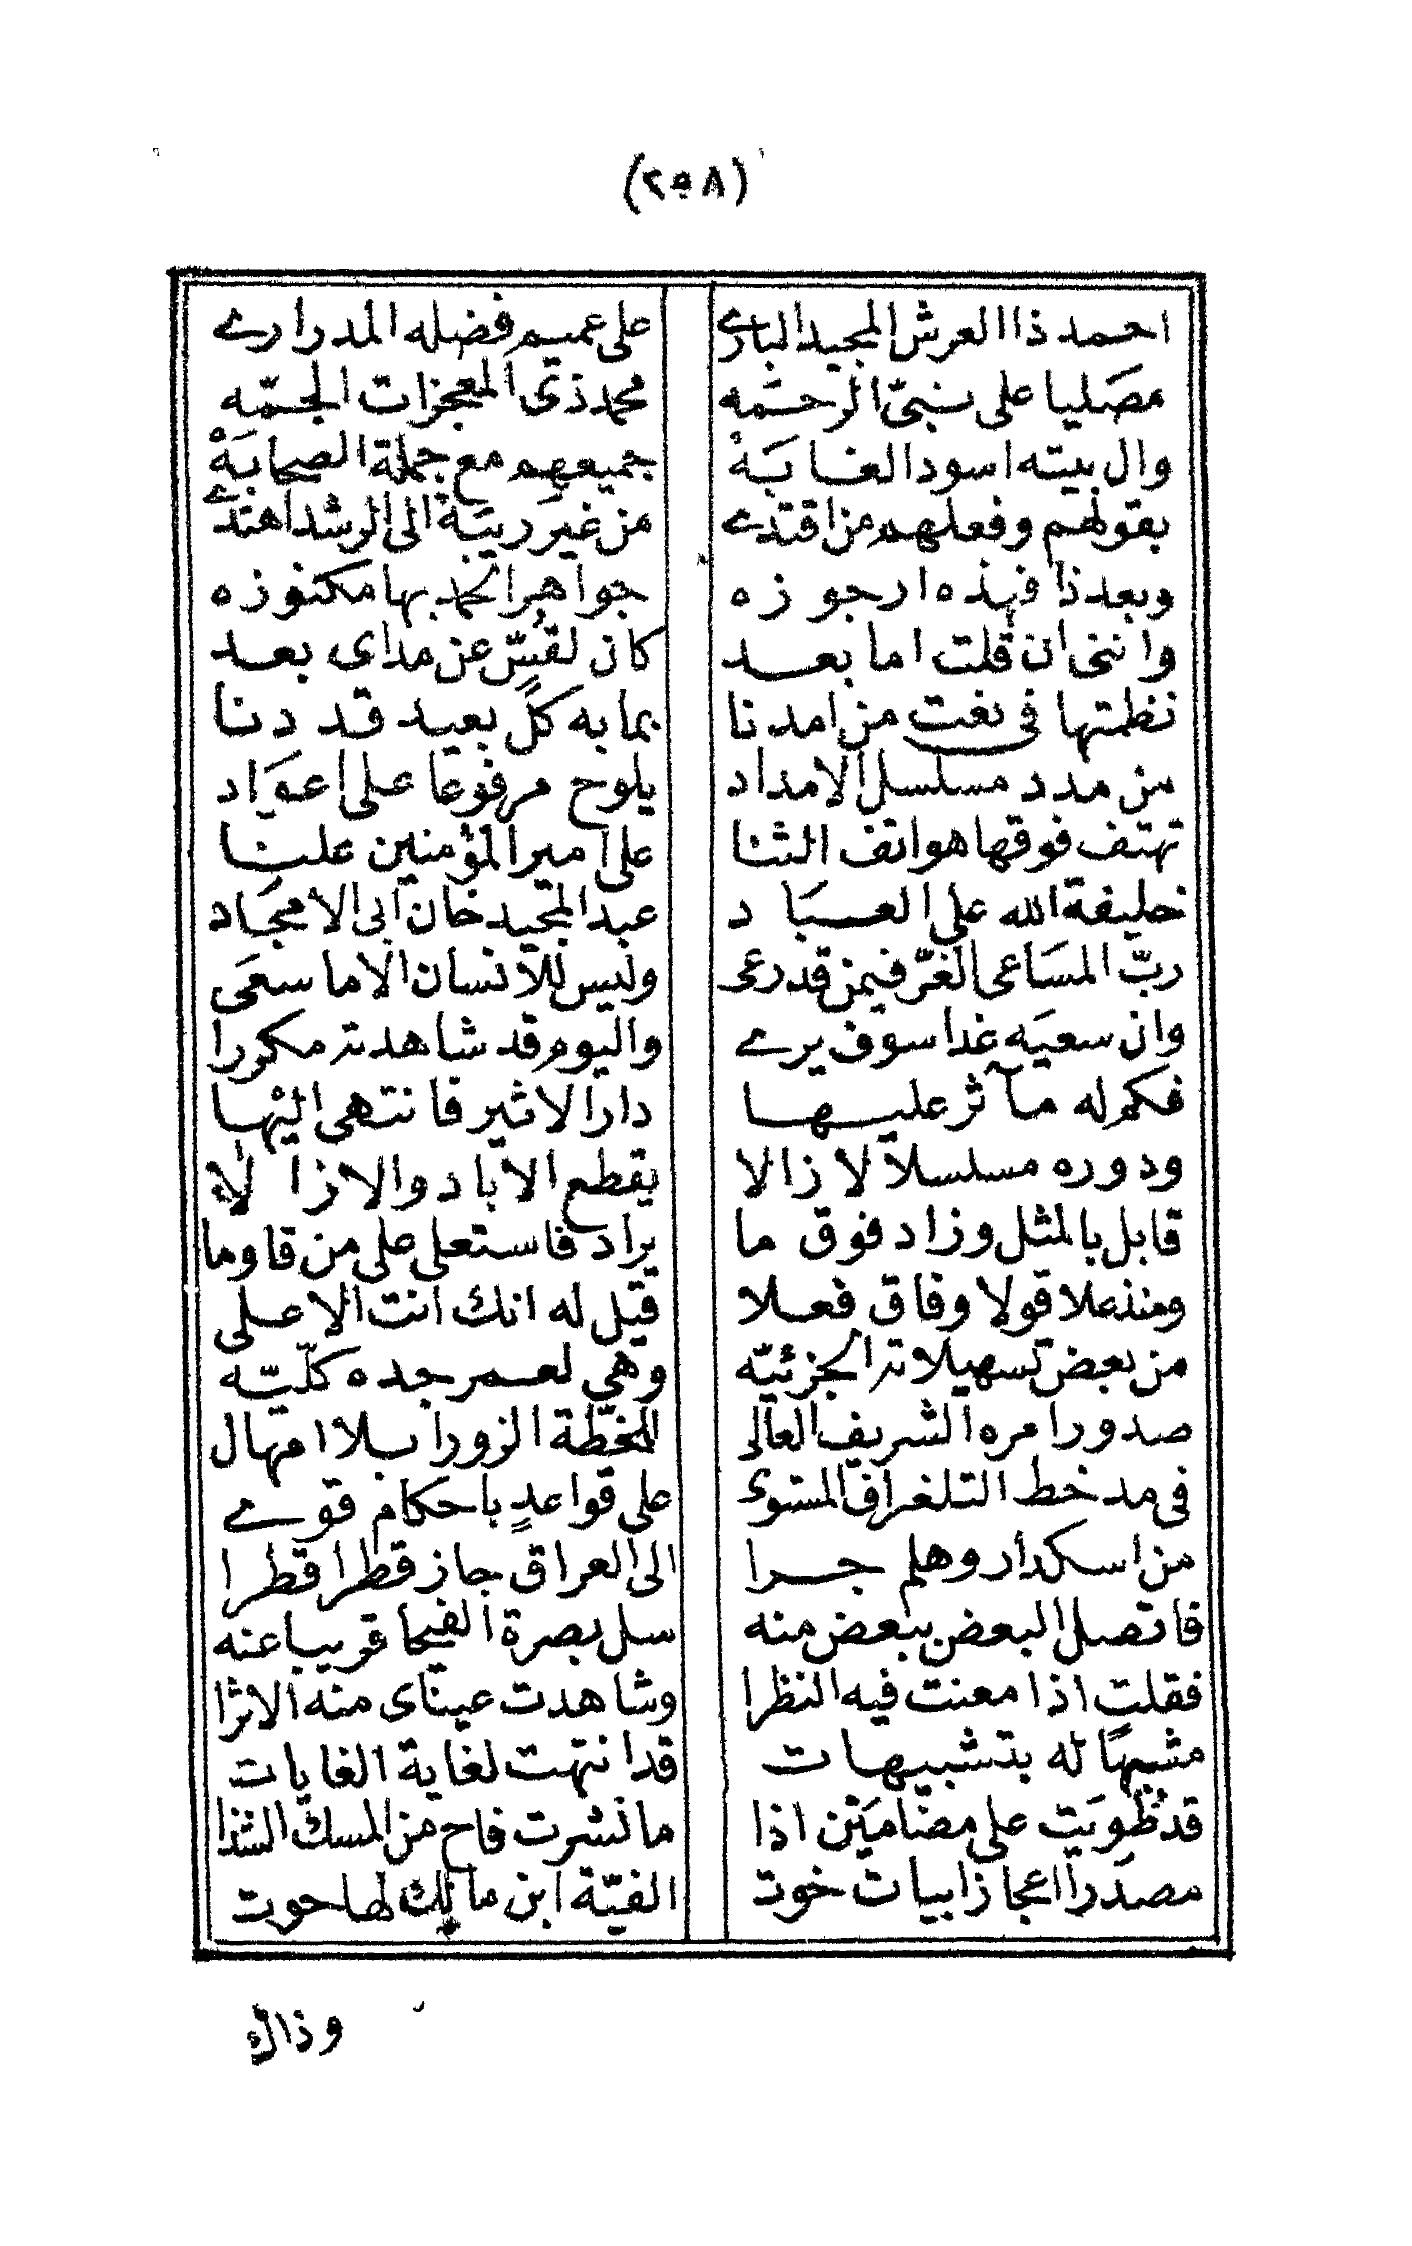 (٢٥٨)
احمد ذا العرش المجيد الباري على عميم فضله المدراري
مصليا على نبيّ الرحمه محمد ذي المعجزات الجمّه
وال بيته اسود الغابَهْ جميعهم مع جملة الصحابَهْ
بقولهم وفعلهم من اقتدي من غير ريبة الى الرشد اهتدي
وبعد ذا فهذه ارجوزه جواهر الحمد بها مكنوزه
وانني ان قلت اما بعد كان لقسّ عن مداى بعد
نظمتها في نعت من امدنا بما به كلّ بعيد قد دنا
من مدد مسلسل الامداد يلوح مرفوعا على اعواد
تهتف فوقها هواتف الثنا على امير المؤمنين علنا
خليفة الله على العباد عبد المجيد خان ابى الامجاد
ربّ المساعى الغرّ فيمن قد رعى وليس للانسان الا ما سعى
وان سعيه غدا سوف يرى واليوم قد شاهدته مكررا
فكم له مآثر عليها دار الاثير فانتهى اليها
ودوره مسلسلا لا زالا يقطع الاباد والازالا
قابل بالمثل وزاد فوق ما يراد فاستعلى على من قاوما
ومنذ علا قولا وفاق فعلا قيل له انك انت الاعلى
من بعض تسهيلاته الجزئيّه وهي لعمر جده كلّيّه
صدور امره الشريف العالى لخطّة الزورا بلا امهال
في مد خط التلغراف المستوى على قواعدٍ باحكام قوي
من اسكدار وهلم جرا الى العراق جاز قطرا قطرا
فاتصل البعض ببعض منه سل بصرة الفيحا قريبا عنه
فقلت اذا معنت فيه النظرا وشاهدت عيناى منه الاثرا
مشبهًا له بتشبيهات قد انتهت لغاية الغايات
قد طويت على مضامين اذا ما نشرت فاح من المسك الشذا
مصدرا اعجاز ابيات خوت الفيّة ابن مالك لها حوت
وذاك